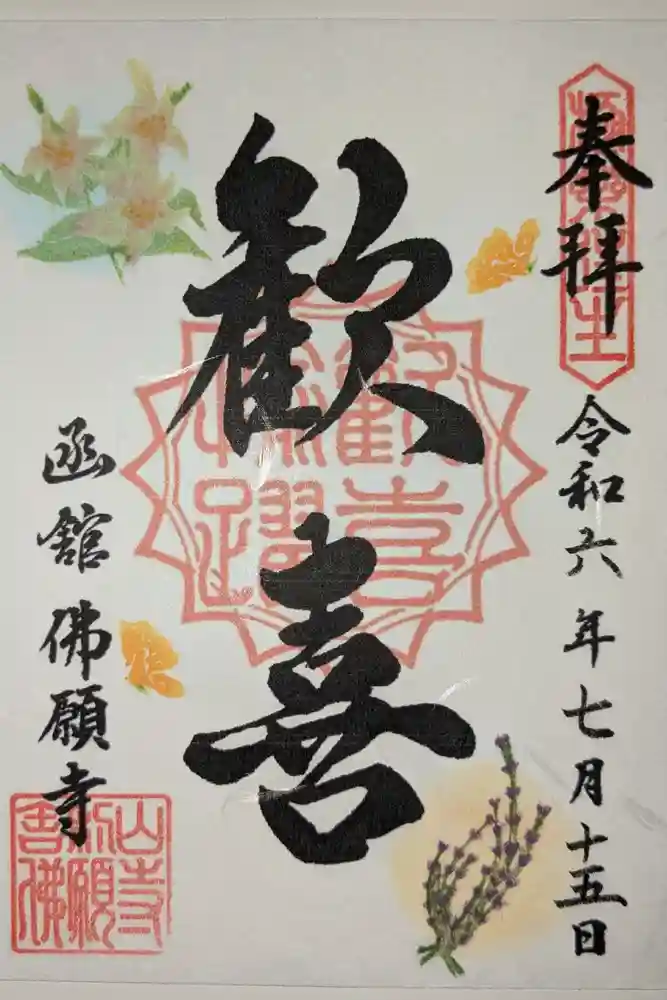 奉拝
令和六年七月十五日
歓喜
歓喜
踊躍
函館佛願寺